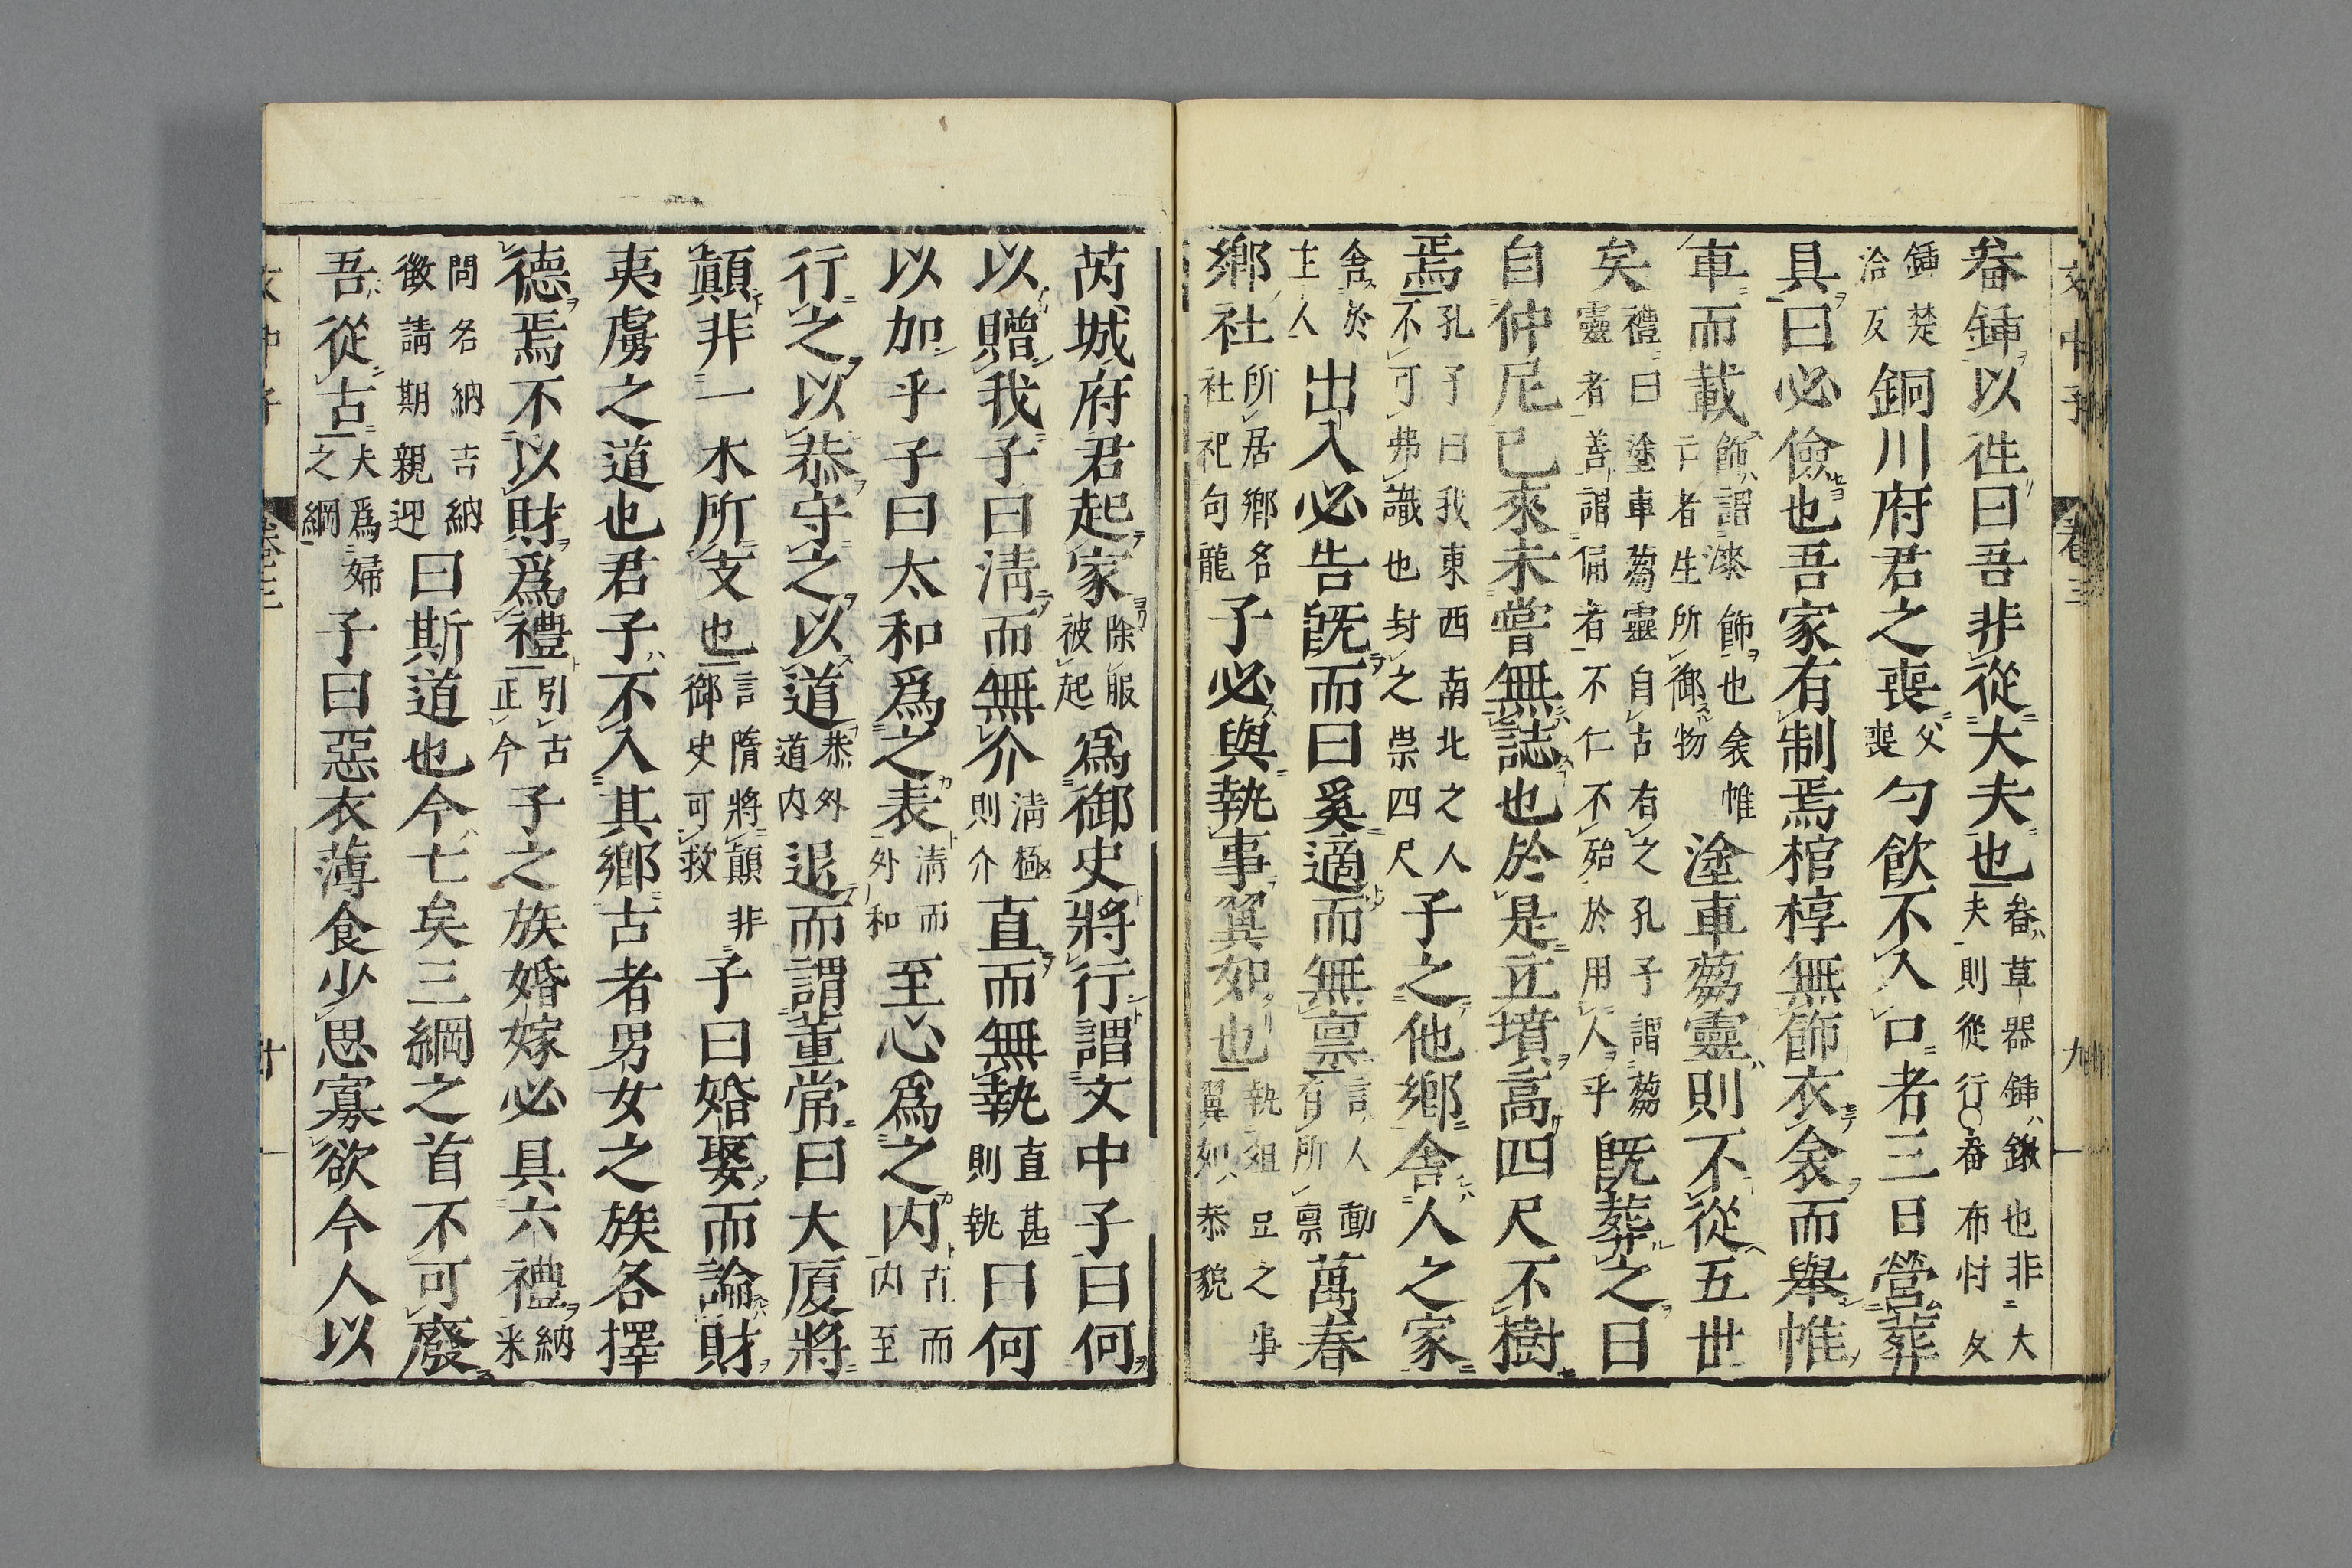 畚鍤以往曰吾非從大夫也畚草器鍤鍬也非大夫則從行○畚布忖攵
鍤楚洽反銅川府君之喪父喪勺飮不入口者三日營葬
具曰必儉也吾家有制焉棺椁無飾衣衾而舉帷
車而載飾謂漆飾也衾帷亡者生所御物塗車芻靈則不從五世
矣禮曰塗車芻靈自古有之孔子謂芻靈者善謂俑者不仁不殆於用人乎既葬之曰
自仲尼已來未嘗無誌也於是立墳高四尺不樹
焉孔子曰我東西南北之人不可弗識也封之崇四尺子之他鄉舍人之家
舍於主人出入必告既而曰奚適而無禀言人動有所禀萬春
鄉社所居鄉名社祀句龍子必與執事翼如也執俎豆之事翼如恭貌
文中子 卷三 九
芮城府君起家除服被起爲御史將行謂文中子曰何
以贈我子曰淸而無介淸極則介直而無執直甚則執曰何
以加乎子曰太和爲之表淸而外和至心爲之内古而内至
行之以恭守之以道恭外道内退而謂董常曰大厦將
顚非一木所支也言隋將顚非御史可救子曰婚娶而論財
夷虜之道也君子不入其鄉古者男女之族各擇
德焉不以財爲禮引古正今子之族婚嫁必具六禮納釆
問名納吉納徵請期親迎曰斯道也今亡矣三綱之首不可廢
吾從古夫爲婦之綱子曰惡衣薄食少思寡欲今人以
文中子 卷三 十